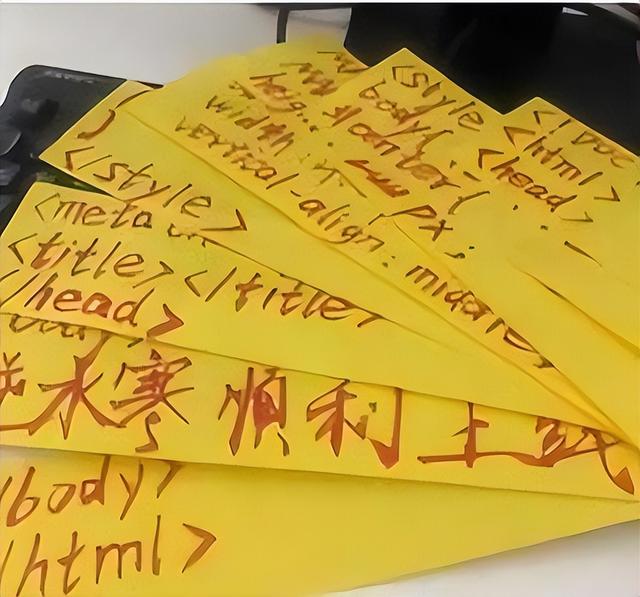 <!Doc
<html>
<head>
<style
body{
px;
width:
vertical-align: middle;
}
</style>
<meta
<title></title>
</head>
逆水寒 順利上线
/body>
/html>